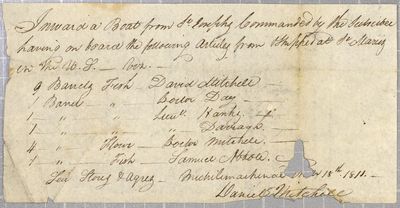 Inward a Boat from St Josephs Commanded by the Subscriber
having on board the following Articles from & Shipped at St Maries
in the U. S. — Viz. —
9 Barrels Fish — David Mitchell —
1 Barrel " Doctor Day —
1 " " Lieut. Hanks
1 " " Darragh —
4 " Flour — Doctor Mitchell —
1 " Fish — Samuel Abbott —
Sea Stores & Michilimackinac 18th 1811 —
Daniel Mitchell